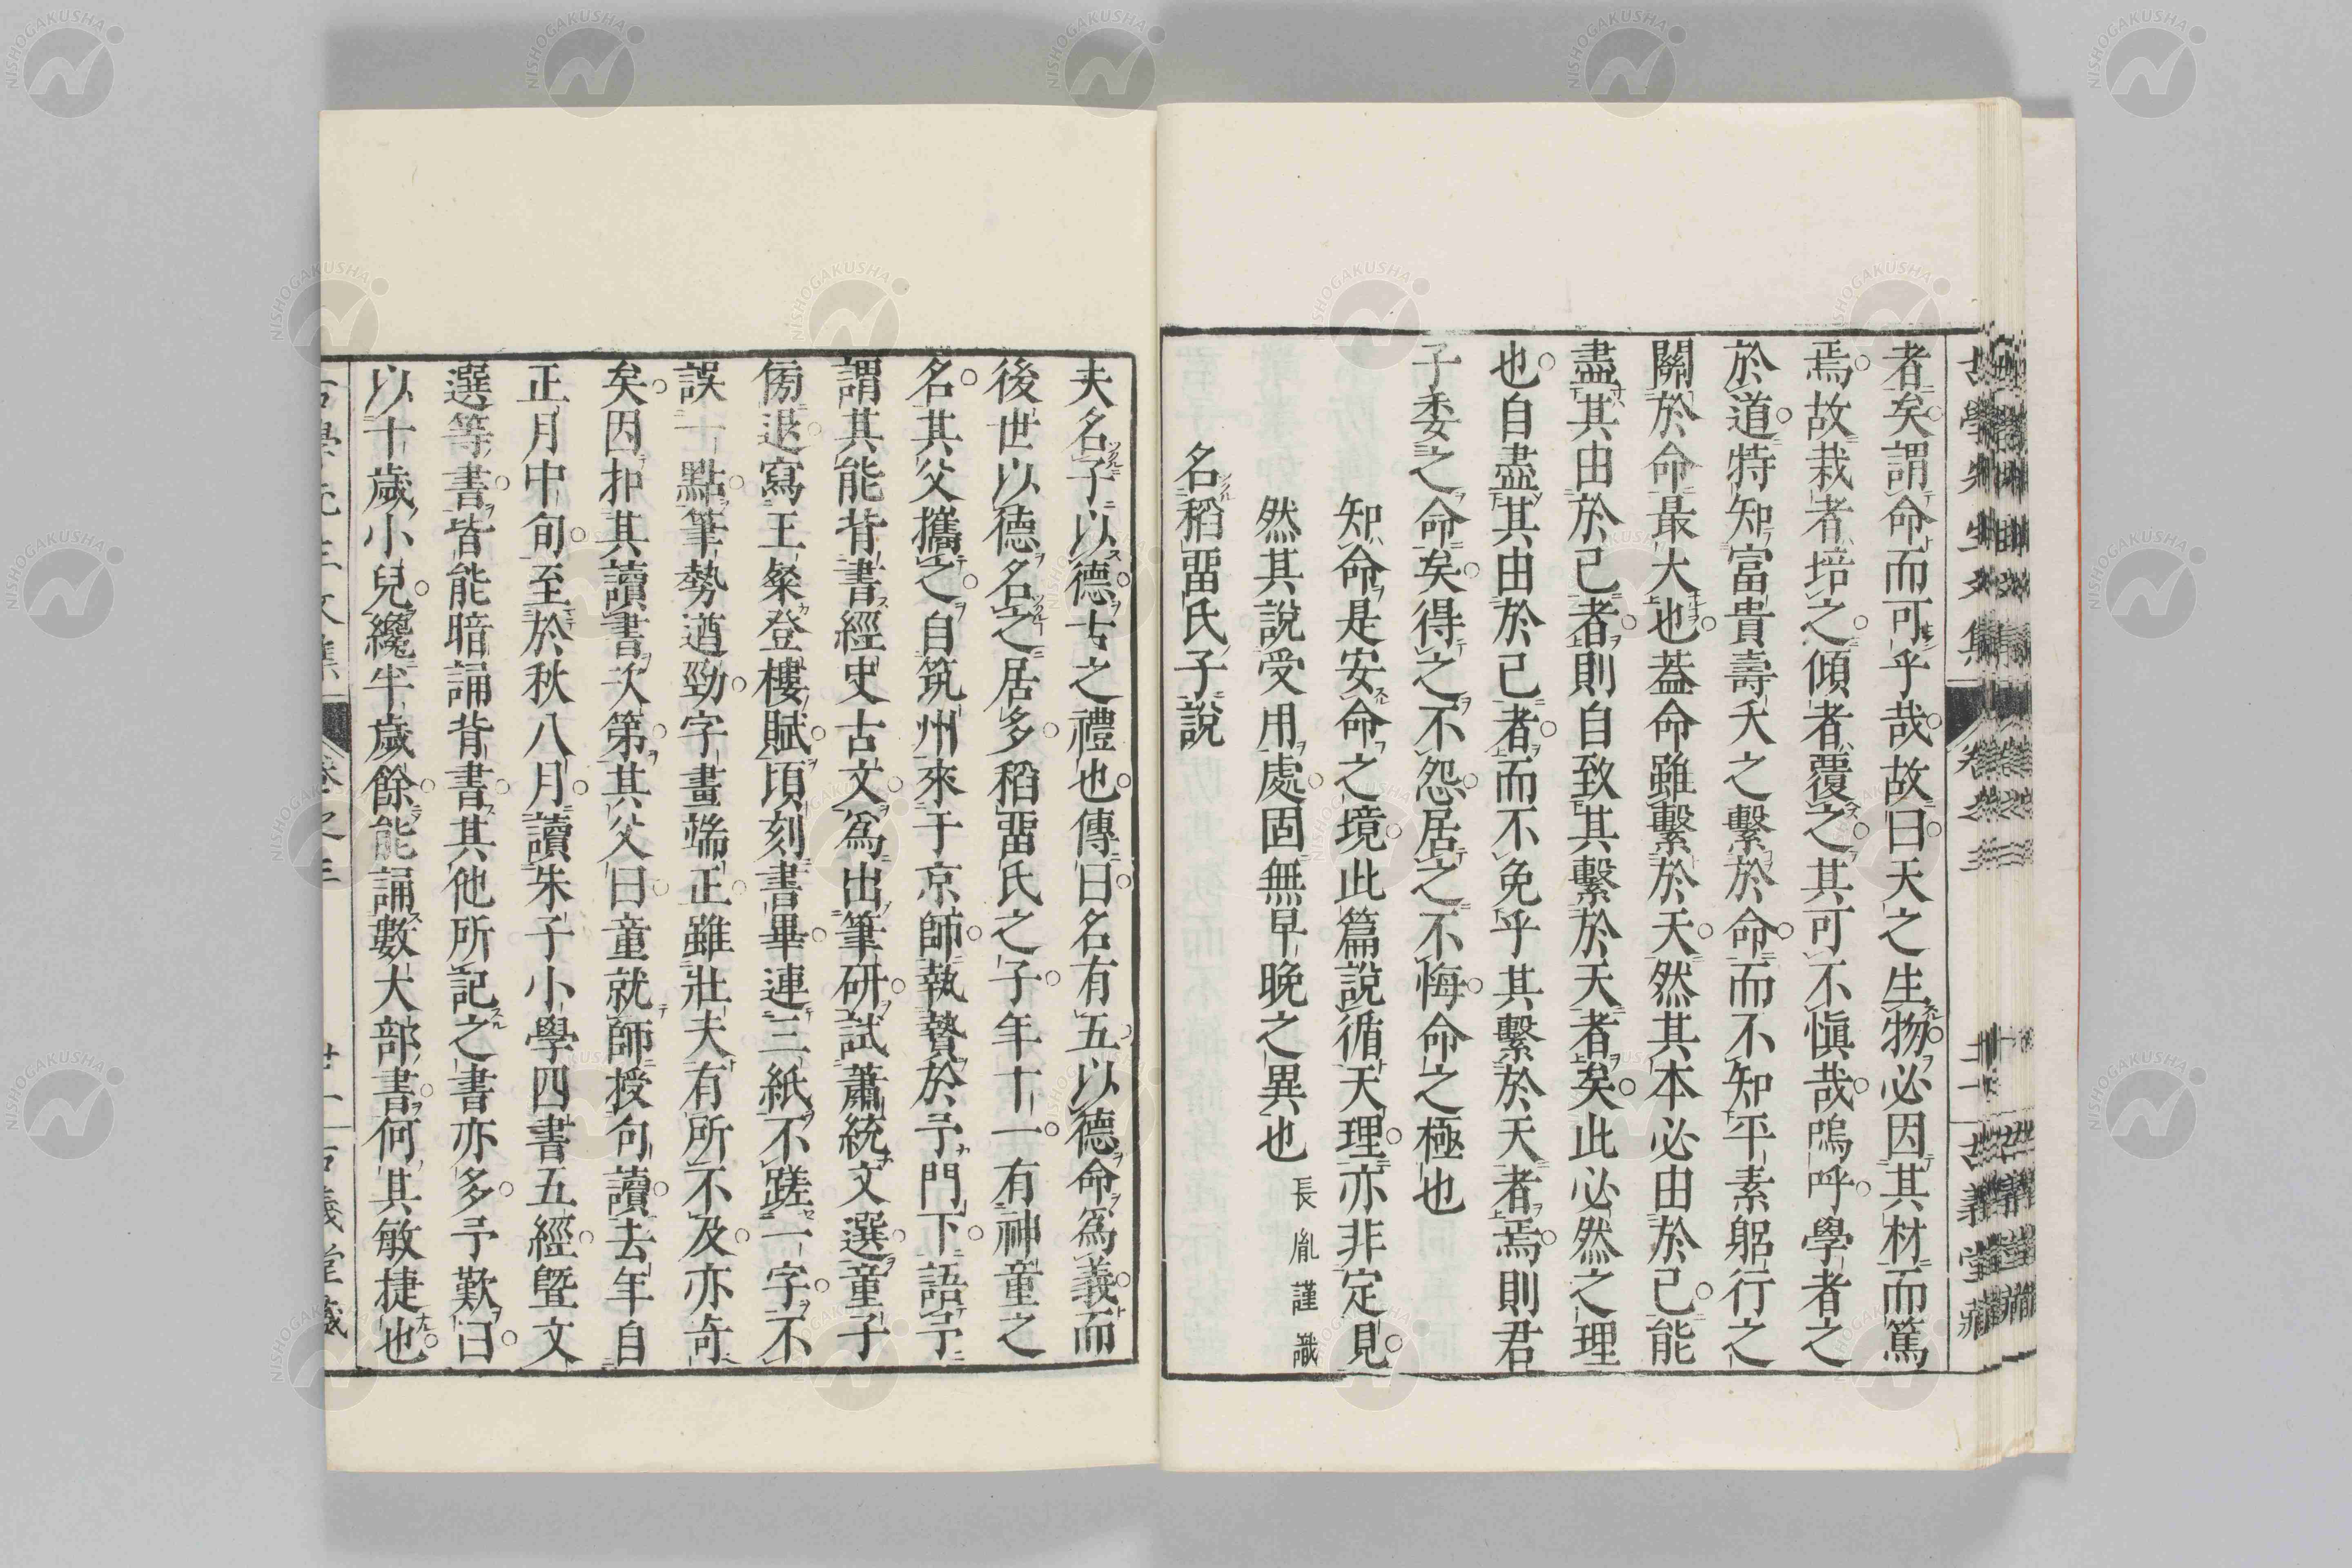 者矣謂命而可乎哉故曰天之生物必因其材而篤
焉故栽者培之傾者覆之其可不愼哉嗚呼學者之
於道特知富貴壽夭之繫於命而不知平素躬行之
關於命最大也葢命雖繫於天然其本必由於己能
盡其由於己者則自致其繫於天者矣此必然之理
也自盡其由於己者而不免乎其繫於天者焉則君
子委之命矣得之不怨居之不悔命之極也
知命是安命之境此篇說循天理亦非定見
然其說受用處固無早晚之異也 長胤謹識
名稻畱氏子說
夫名子以德古之禮也傳曰名有五以德命爲義而
後世以德名之居多稻畱氏之子年十一有神童之
名其父攜之自筑州來于京師執贄於予門下語予
謂其能背書經史古文爲出筆研試蕭統文選童子
傍退寫王粲登樓賦頃刻書畢連三紙不蹉一字不
誤一點筆勢遒勁字畫端正雖壯夫有所不及亦奇
矣因扣其讀書次第其父曰童就師授句讀去年自
正月中旬至於秋八月讀朱子小學四書五經曁文
選等書皆能暗誦背書其他所記之書亦多予歎曰
以十歲小兒纔半歲餘能誦數大部書何其敏捷也
古學先生文集 卷之三 古義堂藏
NISHOGAKUSHA